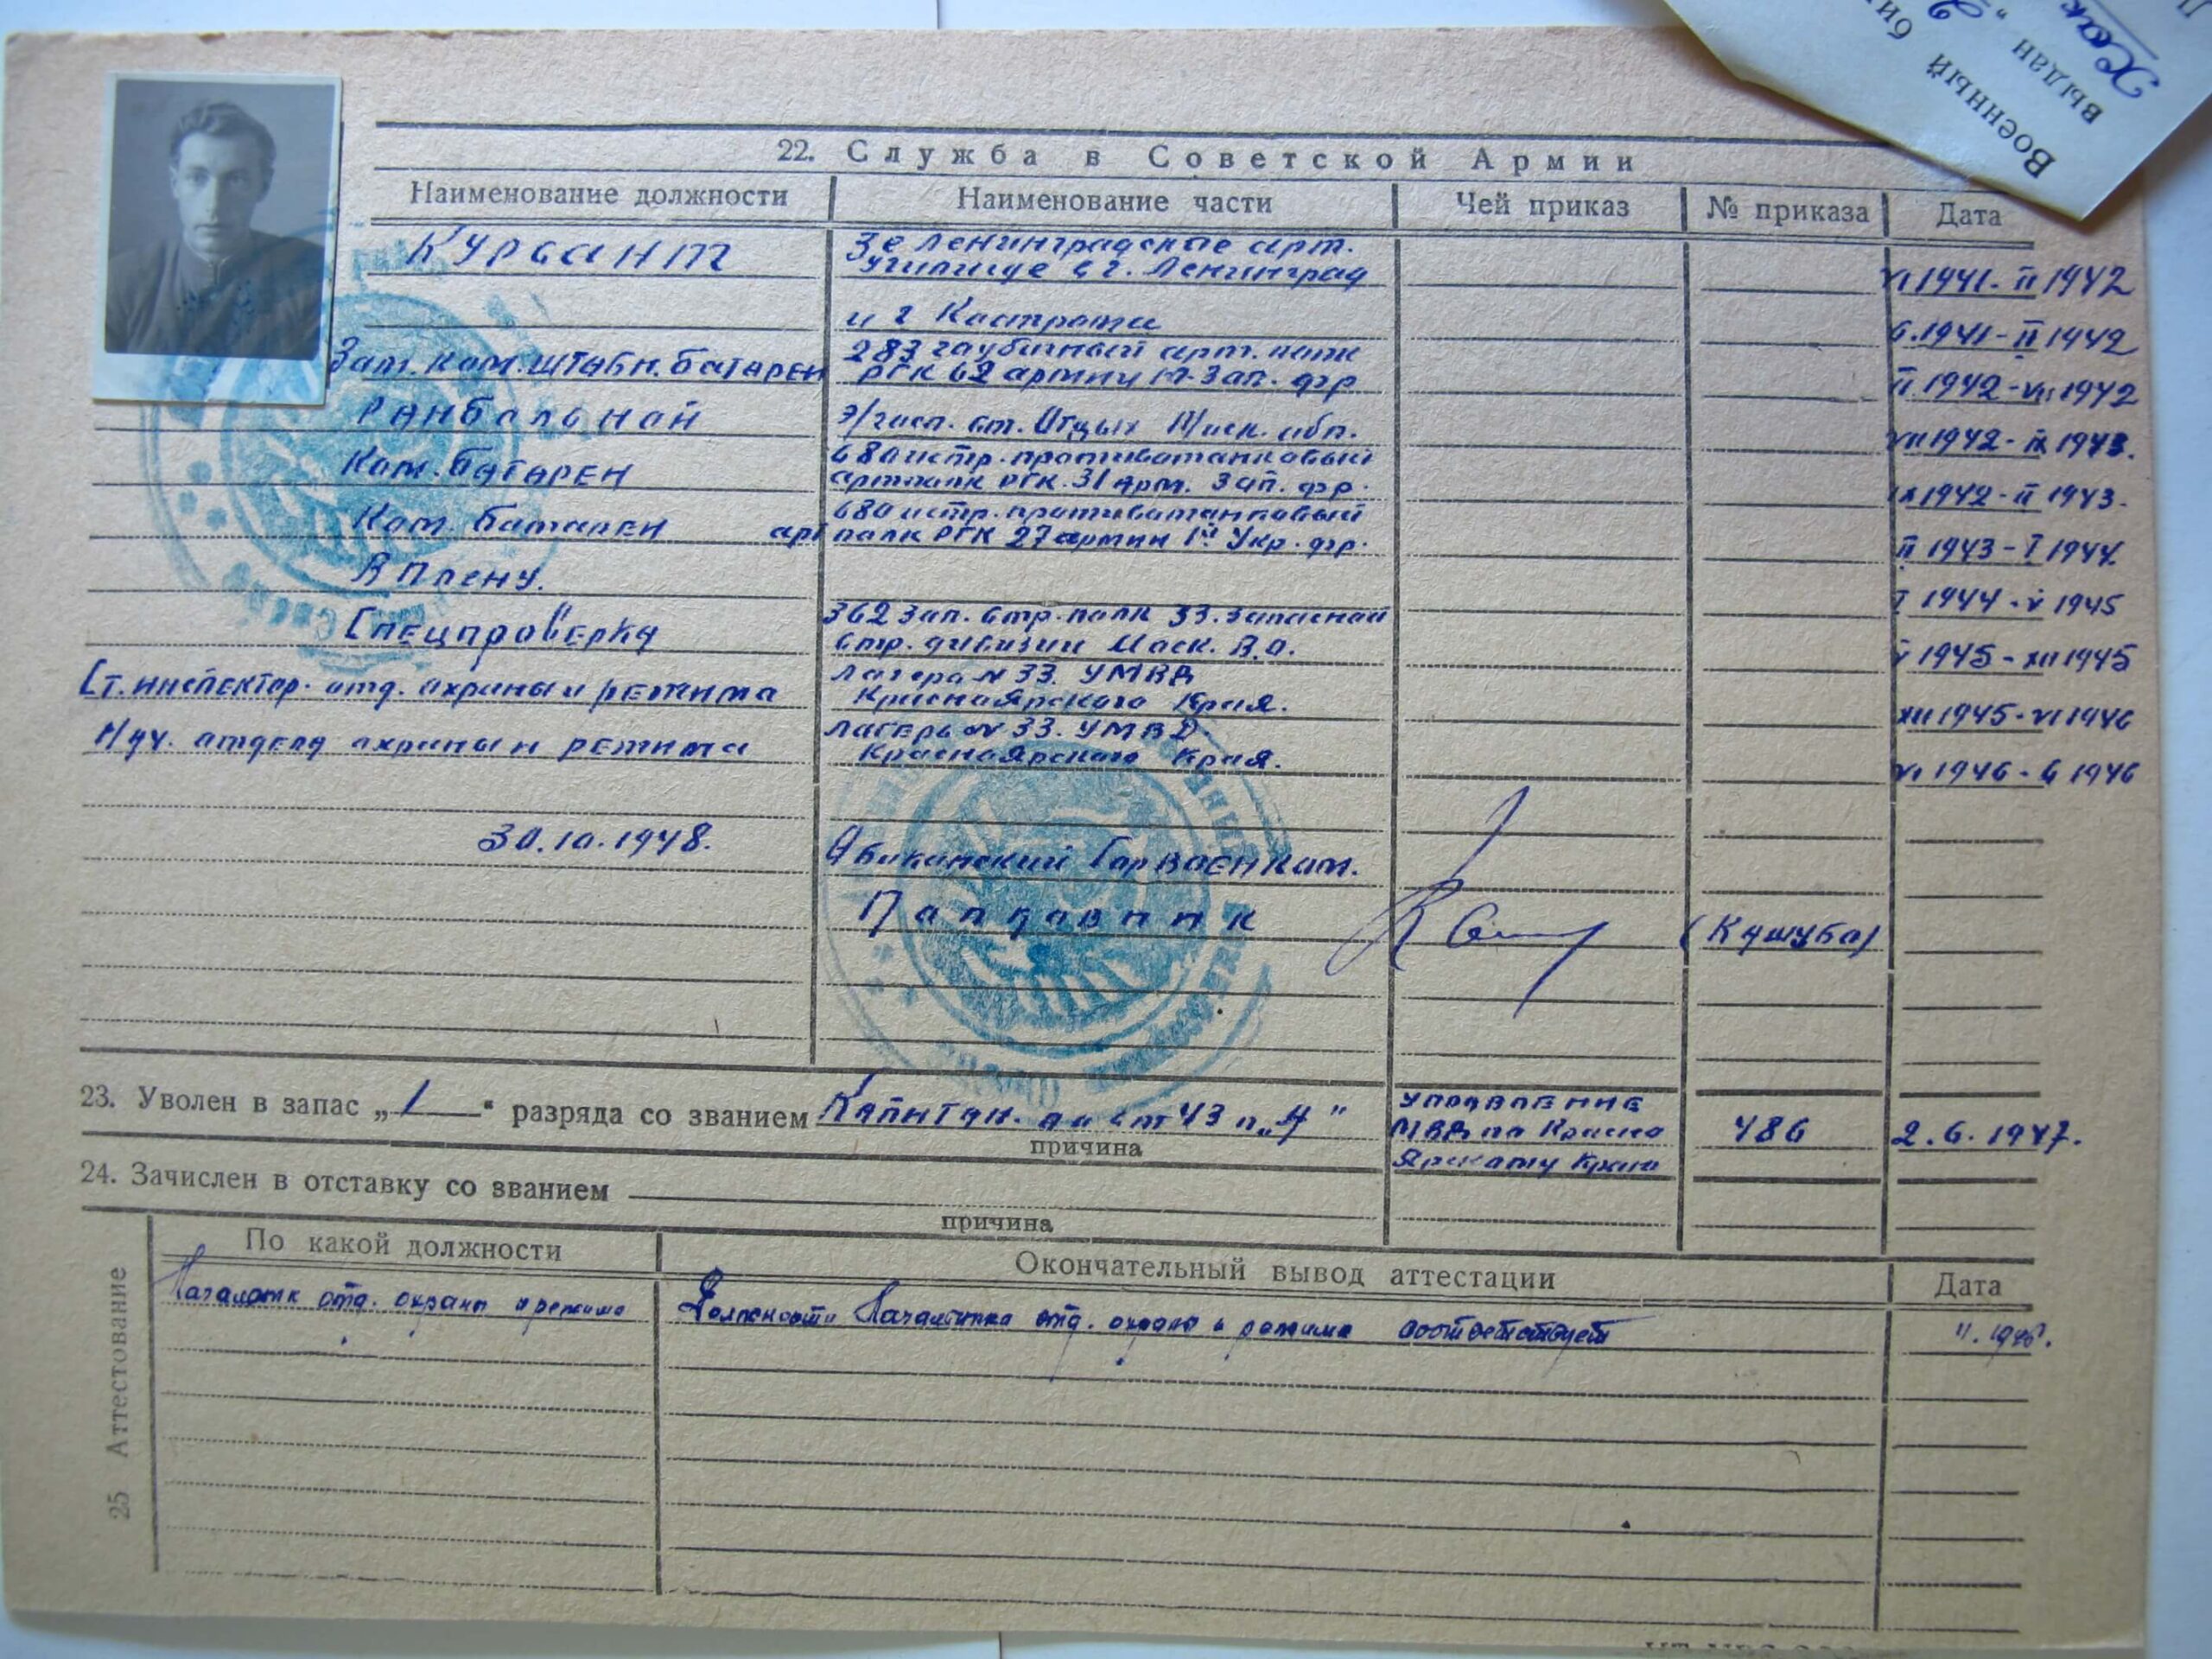 Военный
выдан "
Хак
22. Служба в Советской Армии
Наименование должности Наименование части Чей приказ № приказа Дата
Курсант 3е Ленинградское арт.
училище в г. Ленинград VI 1941 - II 1942
и г Кострома 6.1941 - II 1942
Зам. ком. штабн. батареи 283 гаубичный арт. полк
РГК 62 армии Ю-Зап. фр II 1942 - VII 1942
Ранбольной э/госп. ст. Отдых Моск. обл. VII 1942 - IX 1943.
Ком. батареи 680 истр. противотанковый
артполк РГК. 31 арм. Зап. фр. IX 1942 - II 1943.
Ком. батареи 680 истр. противотанковый
арт полк РГК 27 армии 1й Укр. фр. II 1943 - I 1944.
В плену. I 1944 - V 1945
Спецпроверка 362 Зап. стр. полк 33. запасной
стр. дивизии Моск. В.О. V 1945 - XII 1945
Ст. инспектор. отд. охраны и режима лагеря N 33. УМВД
Красноярского Края. XII 1945 - VI 1946
Нач. отдела охраны и режима лагерь N 33. УМВД.
Красноярского Края. VI 1946 - 6 1946
30.10.1948. Абаканский Горвоенком.
Полковник (Кашуба)
23. Уволен в запас „1“ разряда со званием Капитан. по ст 43 п „А" Управление
МВД по Красно 486 2.6.1947.
причина
ярскому Краю
24. Зачислен в отставку со званием
причина
25 Аттестование
По какой должности Окончательный вывод аттестации Дата
Начальник отд. охраны и режима Должности Начальника отд. охраны и режима соответствует